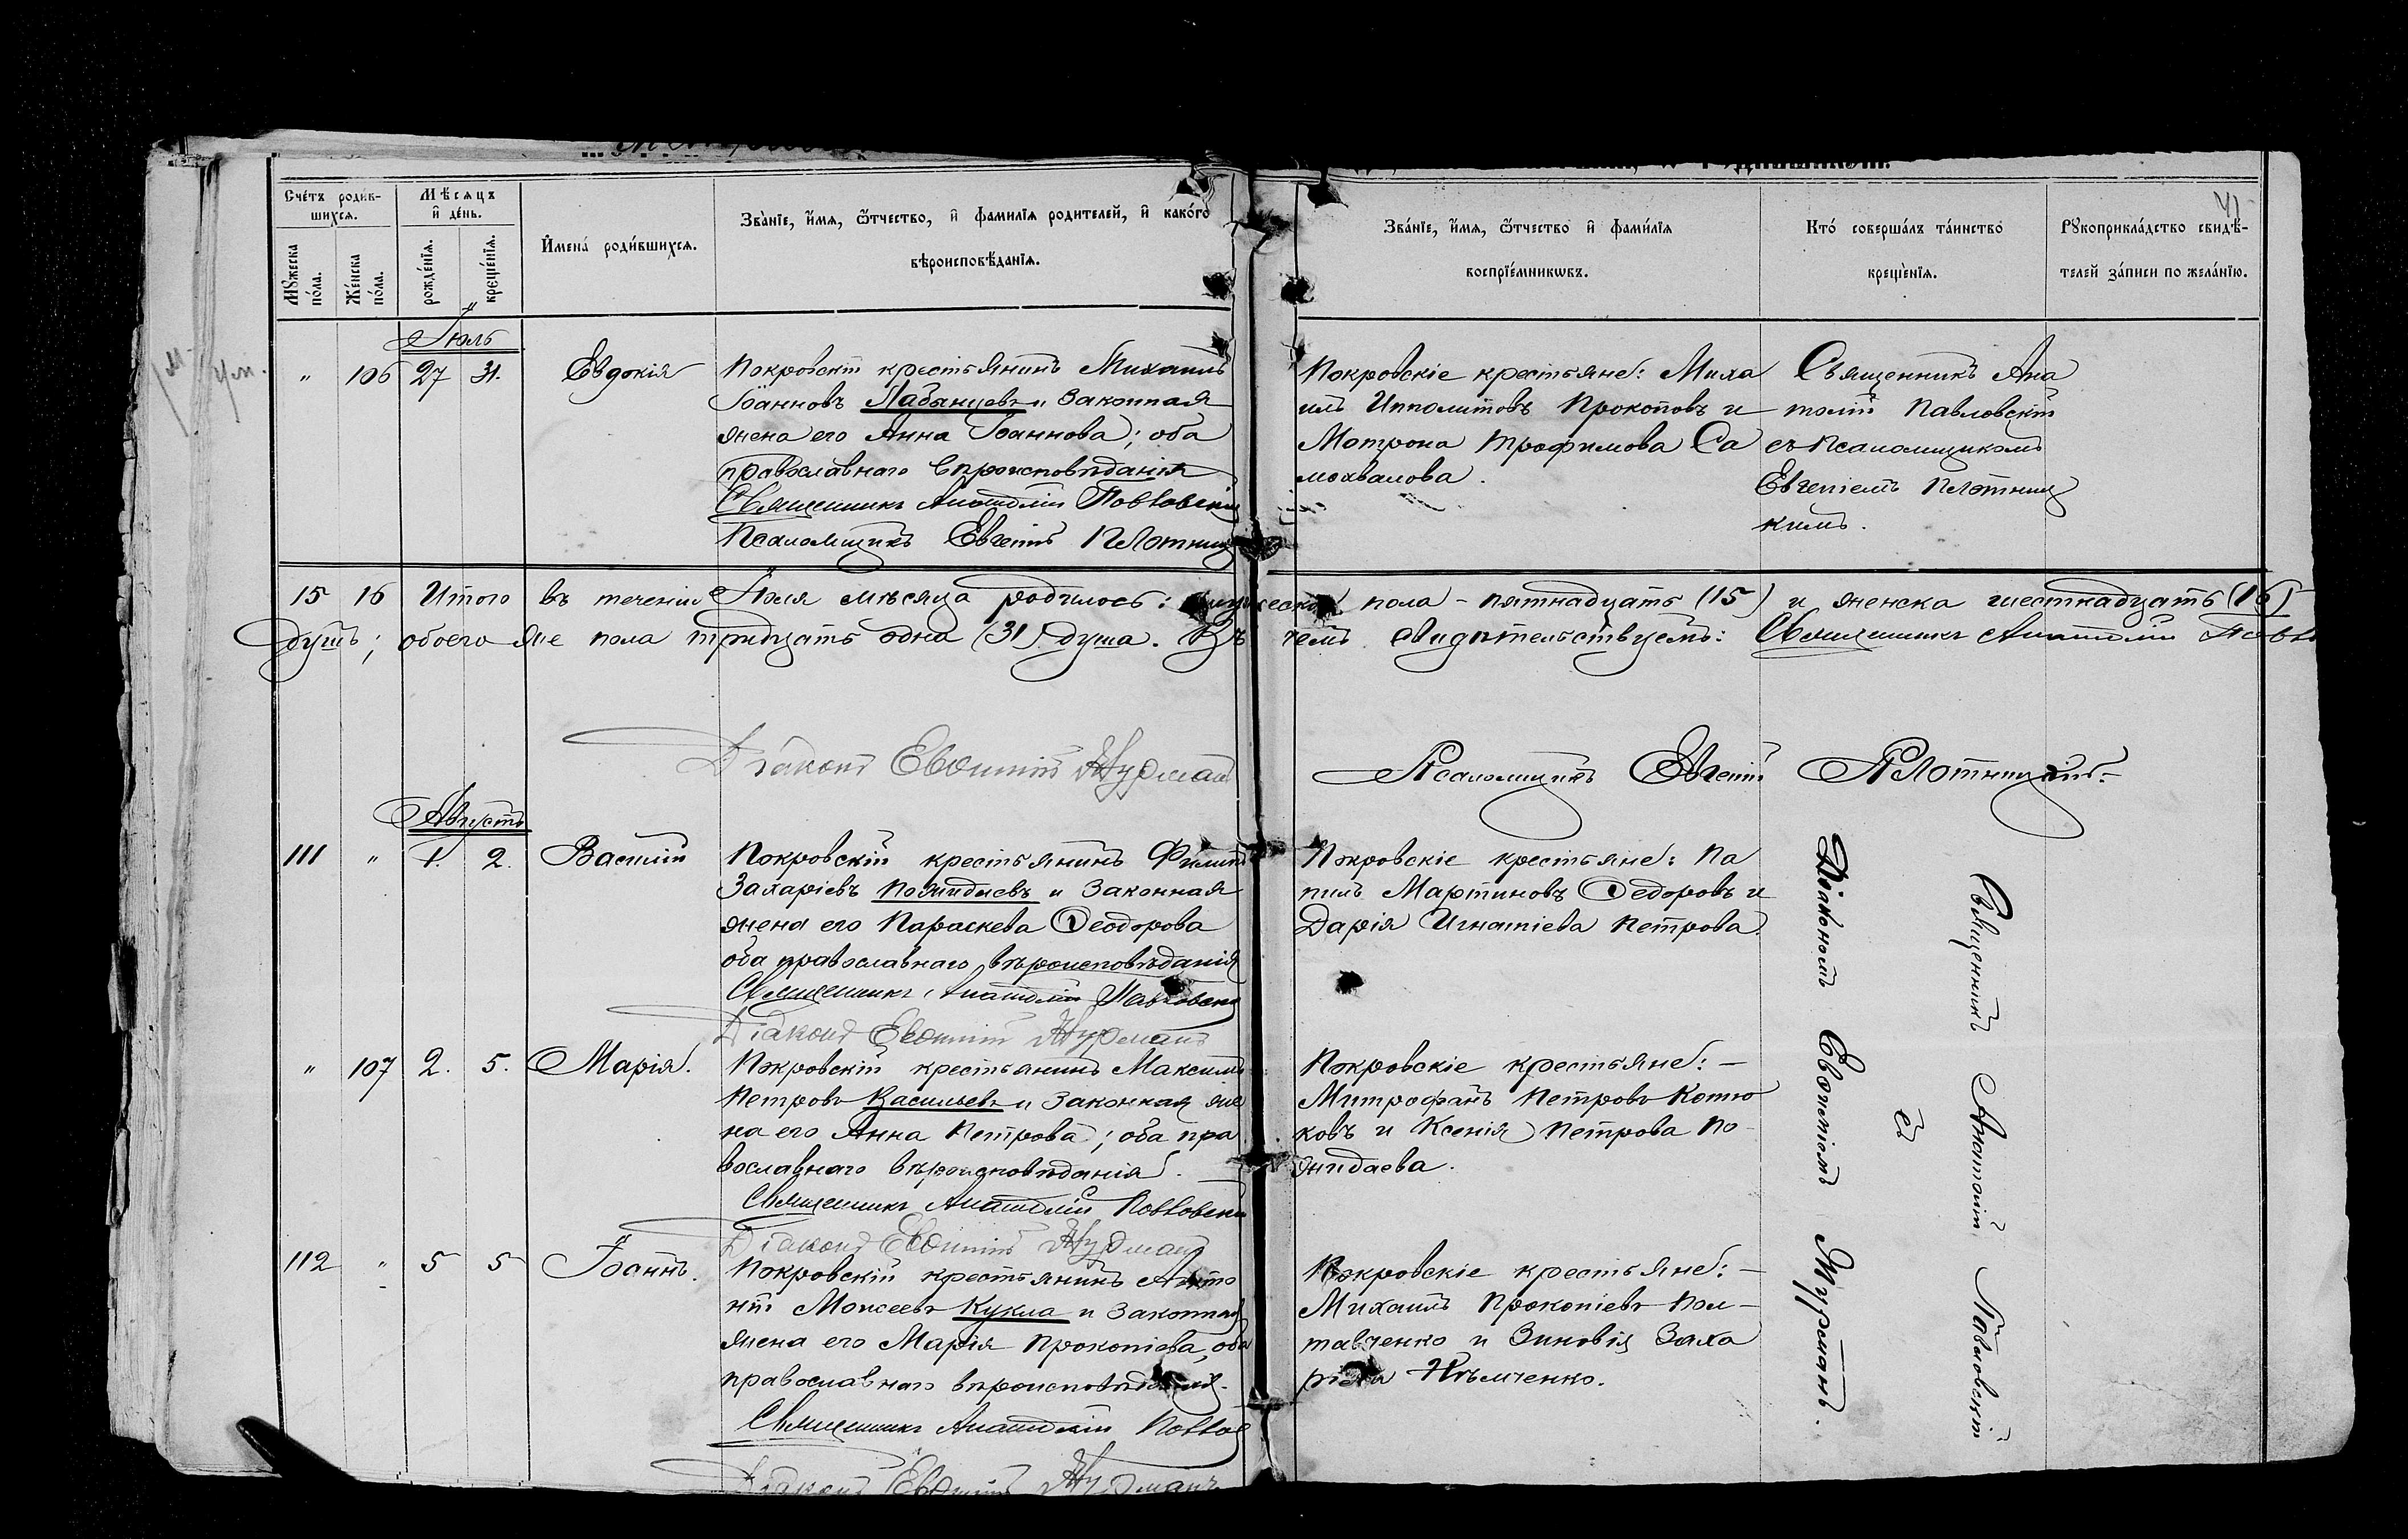 41
Счетъ родив-
шихся.
Мѣсяцъ
и день.
Мужеска
пола.
Женска
пола.
рожденія.
крещенія.
Имена родившихся.
Званіе, имя, отчество, и фамилія родителей, и какого
вѣроисповѣданія.
Званіе, имя, отчество и фамилія
воспріемниковъ.
Кто совершалъ таинство
крещенія.
Рукоприкладство свидѣ-
телей записи по желанію.
Іюль
" 106 27 31. Евдокія
Покровскій крестьянинъ Михаилъ
Іоанновъ Лабынцевъ и законная
жена его Анна Іоаннова; оба
православнаго вѣроисповѣданія
Священникъ Анатолій Павловскій
Псаломщикъ Евгеній Плотниц
Покровскіе крестьяне: Миха
илъ Ипполитовъ Прокоповъ и
Матрона Трофимова Са
мохвалова.
Священникъ Ана
толій Павловскій
съ псаломщикомъ
Евгеніемъ Плотниц
кимъ.
15 16 Итого въ теченіи Іюля мѣсяца родилось: мужеска пола - пятнадцать (15) и женска шестнадцать (16)
душъ; обоего же пола тридцать одна (31) душа. Въ чемъ свидѣтельствуемъ: Священникъ Анатолій Павл
Діаконъ Евфимій Журманъ
Псаломщикъ Евгеній Плотницкій.
Августъ
111 " 1. 2. Василій
Покровскій крестьянинъ Филипъ
Захаріевъ Пожидаевъ и законная
жена его Параскева Ѳеодорова
оба православнаго вѣроисповѣданія
Священникъ Анатолій Павловскій
Діаконъ Евфимій Журманъ
Покровскіе крестьяне: Па
пилъ Мартиновъ Ѳедоровъ и
Дарія Игнатіева Петрова.
" 107 2. 5. Марія.
Покровскій крестьянинъ Максимъ
Петровъ Васильевъ и законная же
на его Анна Петрова; оба пра
вославнаго вѣроисповѣданія.
Священникъ Анатолій Павловскій
Діаконъ Евфимій Журманъ
Покровскіе крестьяне: -
Митрофанъ Петровъ Котю
ковъ и Ксенія Петрова По
жидаева.
112 " 5 5 Іоаннъ.
Покровскій крестьянинъ Анто
ній Моисеевъ Кукла и законная
жена его Марія Прокопіева, оба
православнаго вѣроисповѣданія.
Священникъ Анатолій Павлов
Діаконъ Евфимій Журманъ
Покровскіе крестьяне: -
Михаилъ Прокопіевъ Пол-
тавченко и Зиновія Заха
ріева Нѣмченко.
Священникъ Анатолій Павловскій
съ
Діакономъ Евфиміемъ Журманъ.